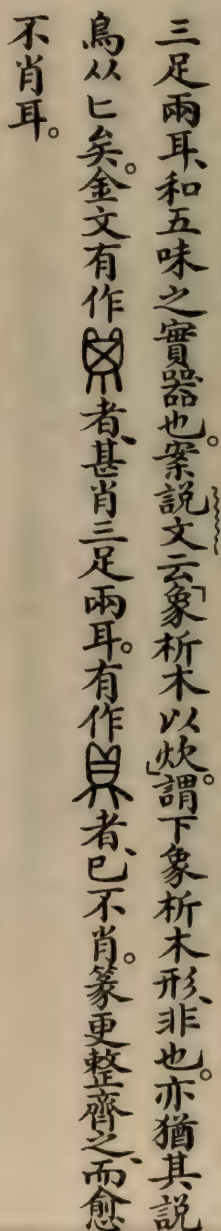 三足兩耳、和五味之寶器也。案説文云「象析木以炊」。謂下象析木形、非也。亦猶其説
鳥从匕矣。金文有作者、甚肖三足兩耳。有作者、已不肖。篆更整齊之、而愈
不肖耳。